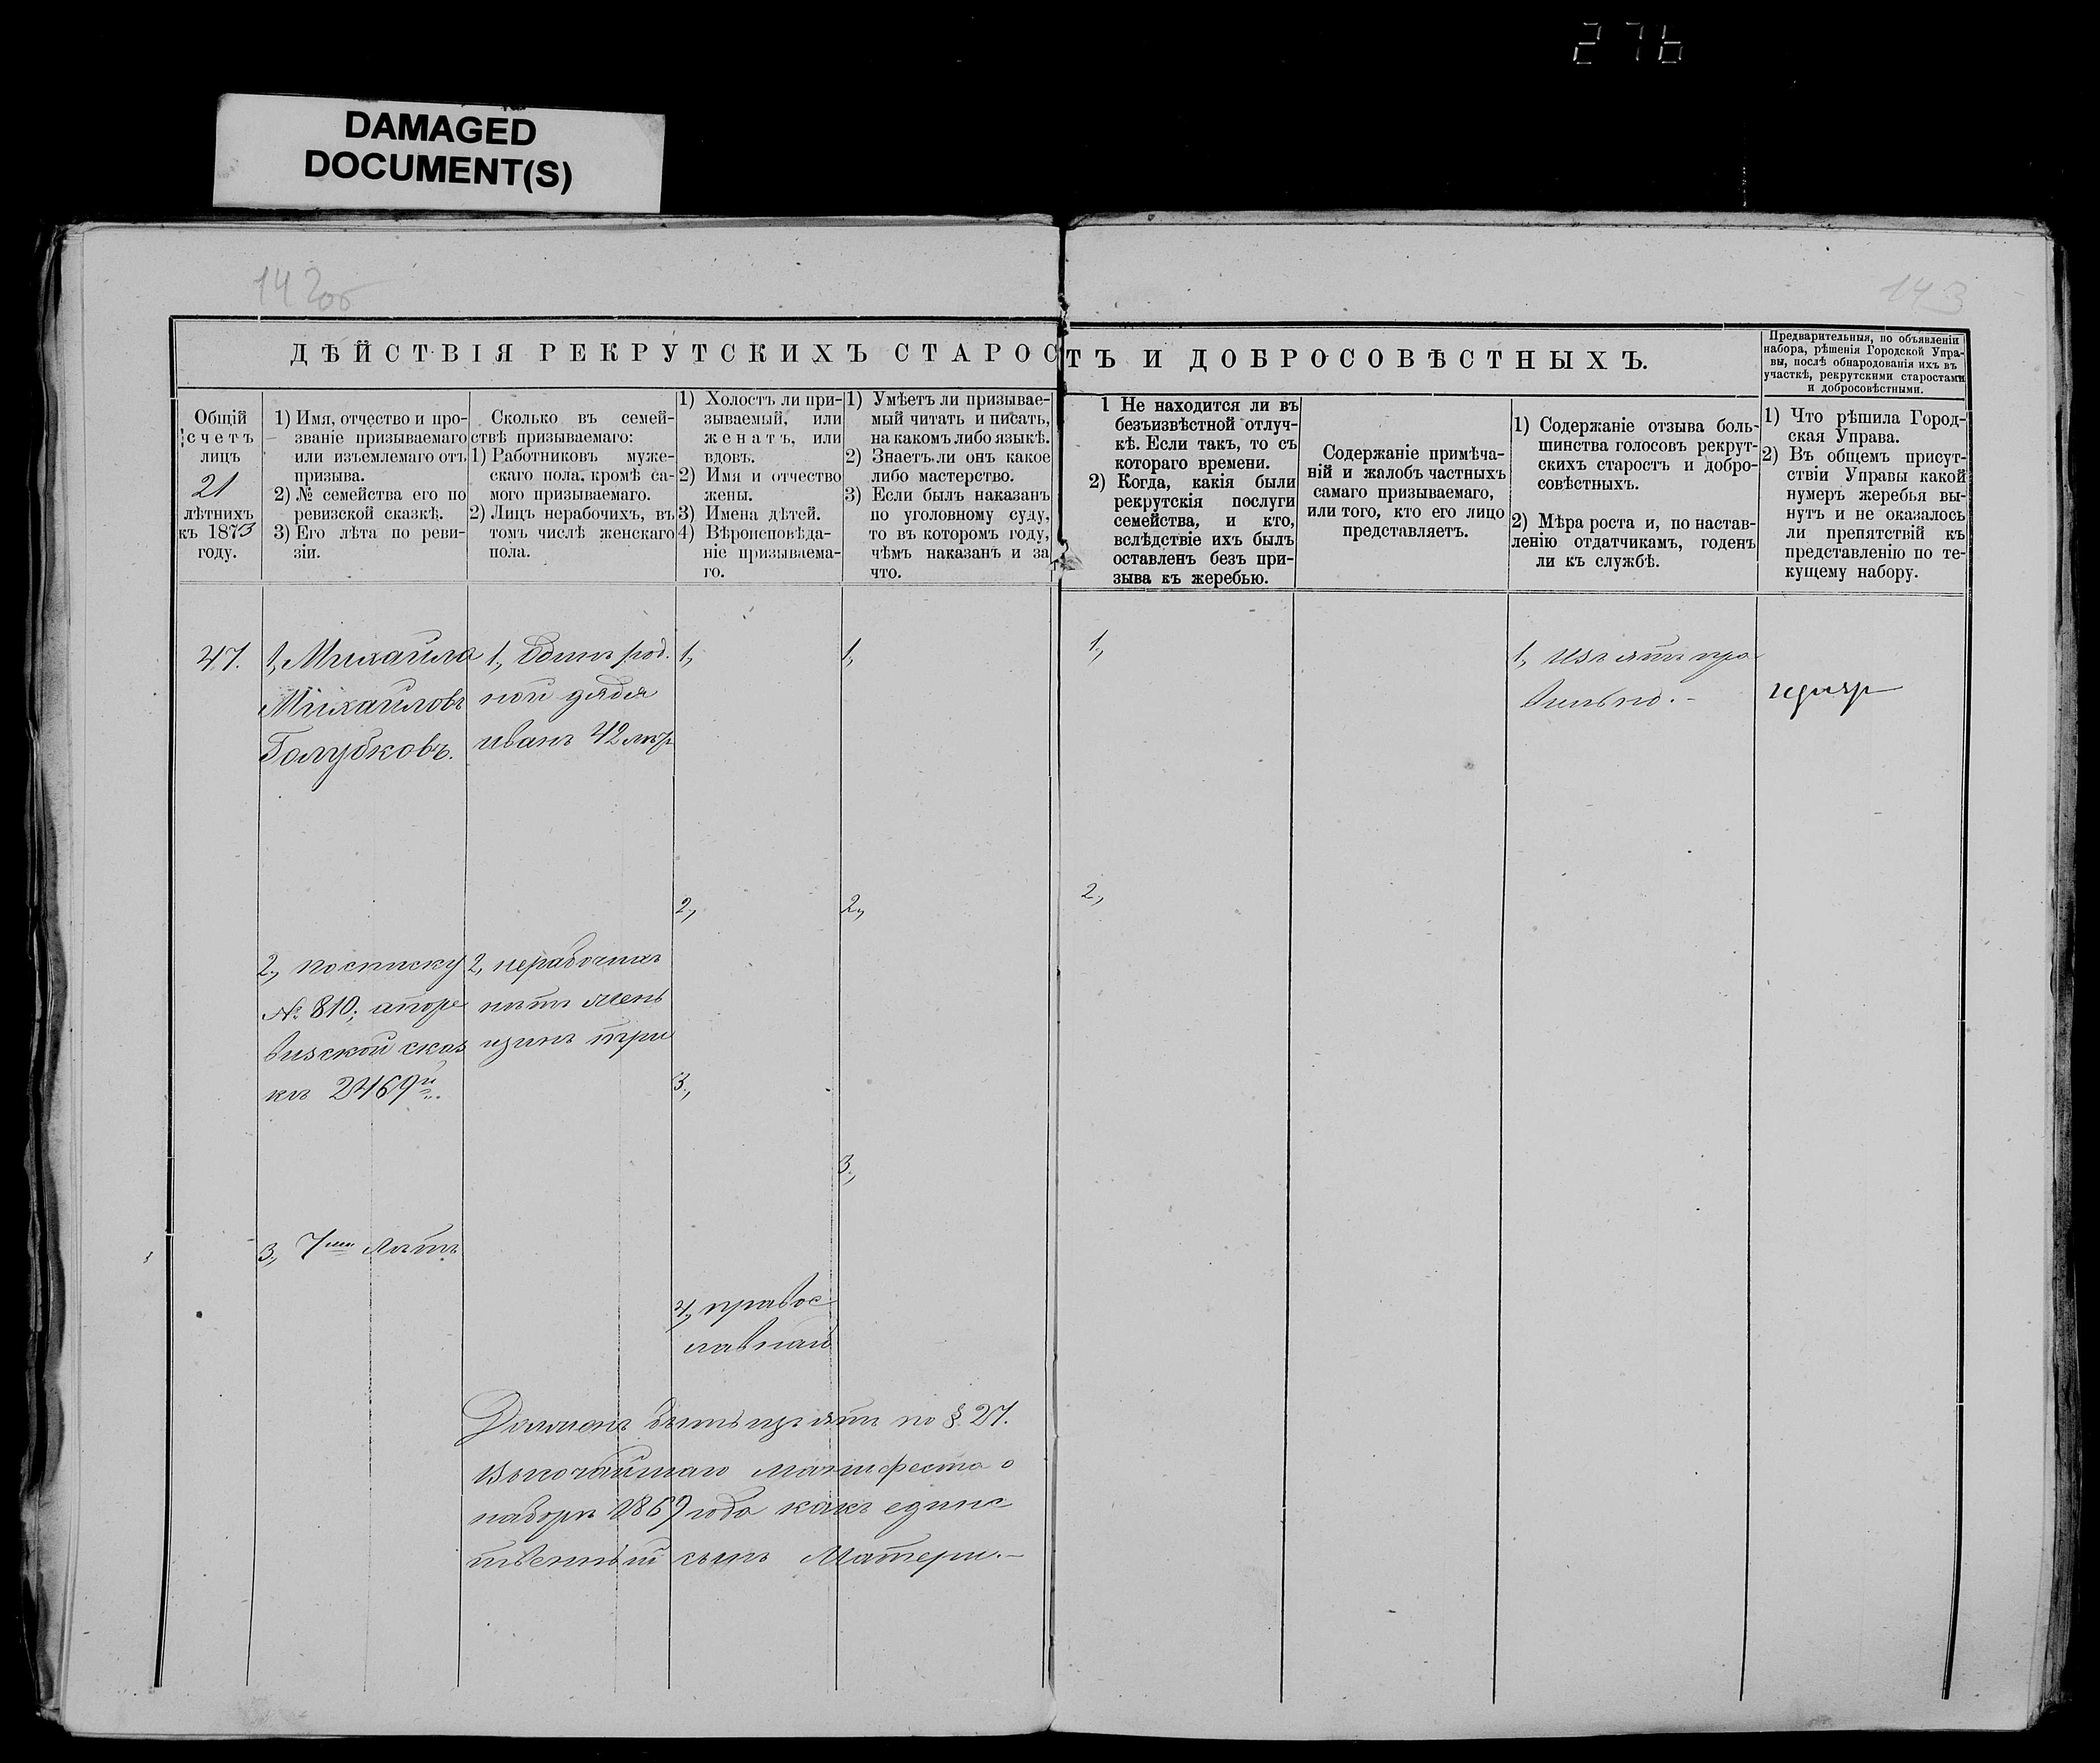 276
DAMAGED
DOCUMENT(S)
142об
143
ДѢЙСТВІЯ РЕКРУТСКИХЪ СТАРОСТЪ И ДОБРОСОВѢСТНЫХЪ.
Предварительныя, по объявленіи
набора, рѣшенія Городской Упра-
вы, послѣ обнародованія ихъ въ
участкѣ, рекрутскими старостами
и добросовѣстными.
Общій
счетъ
лицъ
21
лѣтнихъ
къ 1873
году.
1) Имя, отчество и про-
званіе призываемаго
или изъемлемаго отъ
призыва.
2) № семейства его по
ревизской сказкѣ.
3) Его лѣта по реви-
зіи.
Сколько въ семей-
ствѣ призываемаго:
1) Работниковъ муже-
скаго пола, кромѣ са-
мого призываемаго.
2) Лицъ нерабочихъ, въ
томъ числѣ женскаго
пола.
1) Холостъ ли при-
зываемый, или
женатъ, или
вдовъ.
2) Имя и отчество
жены.
3) Имена дѣтей.
4) Вѣроисповѣда-
ніе призываема-
го.
1) Умѣетъ ли призывае-
мый читать и писать,
на какомъ либо языкѣ.
2) Знаетъ ли онъ какое
либо мастерство.
3) Если былъ наказанъ
по уголовному суду,
то въ которомъ году,
чѣмъ наказанъ и за
что.
1 Не находится ли въ
безъизвѣстной отлуч-
кѣ. Если такъ, то съ
котораго времени.
2) Когда, какія были
рекрутскія послуги
семейства, и кто,
вслѣдствіе ихъ былъ
оставленъ безъ при-
зыва къ жеребью.
Содержаніе примѣча-
ній и жалобъ частныхъ
самаго призываемаго,
или того, кто его лицо
представляетъ.
1) Содержаніе отзыва боль-
шинства голосовъ рекрут-
скихъ старостъ и добро-
совѣстныхъ.
2) Мѣра роста и, по настав-
ленію отдатчикамъ, годенъ
ли къ службѣ.
1) Что рѣшила Город-
ская Управа.
2) Въ общемъ присут-
ствіи Управы какой
нумеръ жеребья вы-
нутъ и не оказалось
ли препятствій къ
представленію по те-
кущему набору.
47.
1, Михаила
Михайловъ
Голубковъ.
2, по списку
№ 810; а по ре
визской сказ
кѣ 2469й
3, 7ми лѣтъ
1, Одинъ род.
ной дядя
иванъ 42 лѣт
2, нерабочихъ
нѣтъ жен
щинъ три
1,
2,
3,
4, правос
лавнай
1,
2,
3,
Долженъ быть изъятъ по § 27.
Высочайшаго манифеста о
наборѣ 1869 года какъ единс
твенный сынъ Матери.—
1,
2,
1, Изъятъ пра
вильно.—